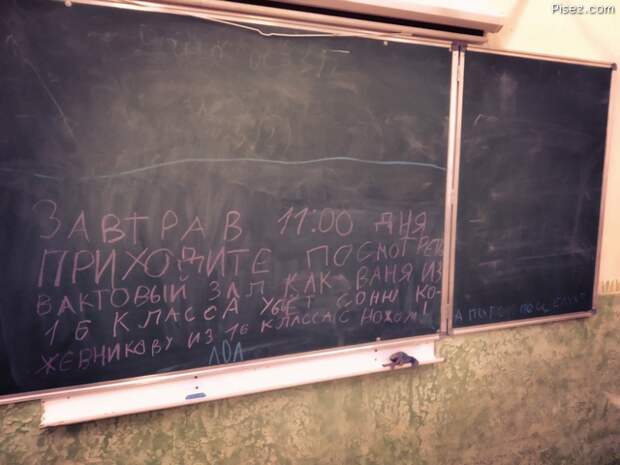 Pisez.com
ЗАВТРА В 11:00 ДНЯ
ПРИХОДИТЕ ПОСМОТРЕТЬ
ВАКТОВЫЙ ЗАЛ КАК ВАНЯ ИЗ
1 Б КЛАССА УБЁТ СОНЮ КО-
ЖЕВНИКОВУ ИЗ 1Б КЛАССА С НОЖОМ!
ЛОЛ